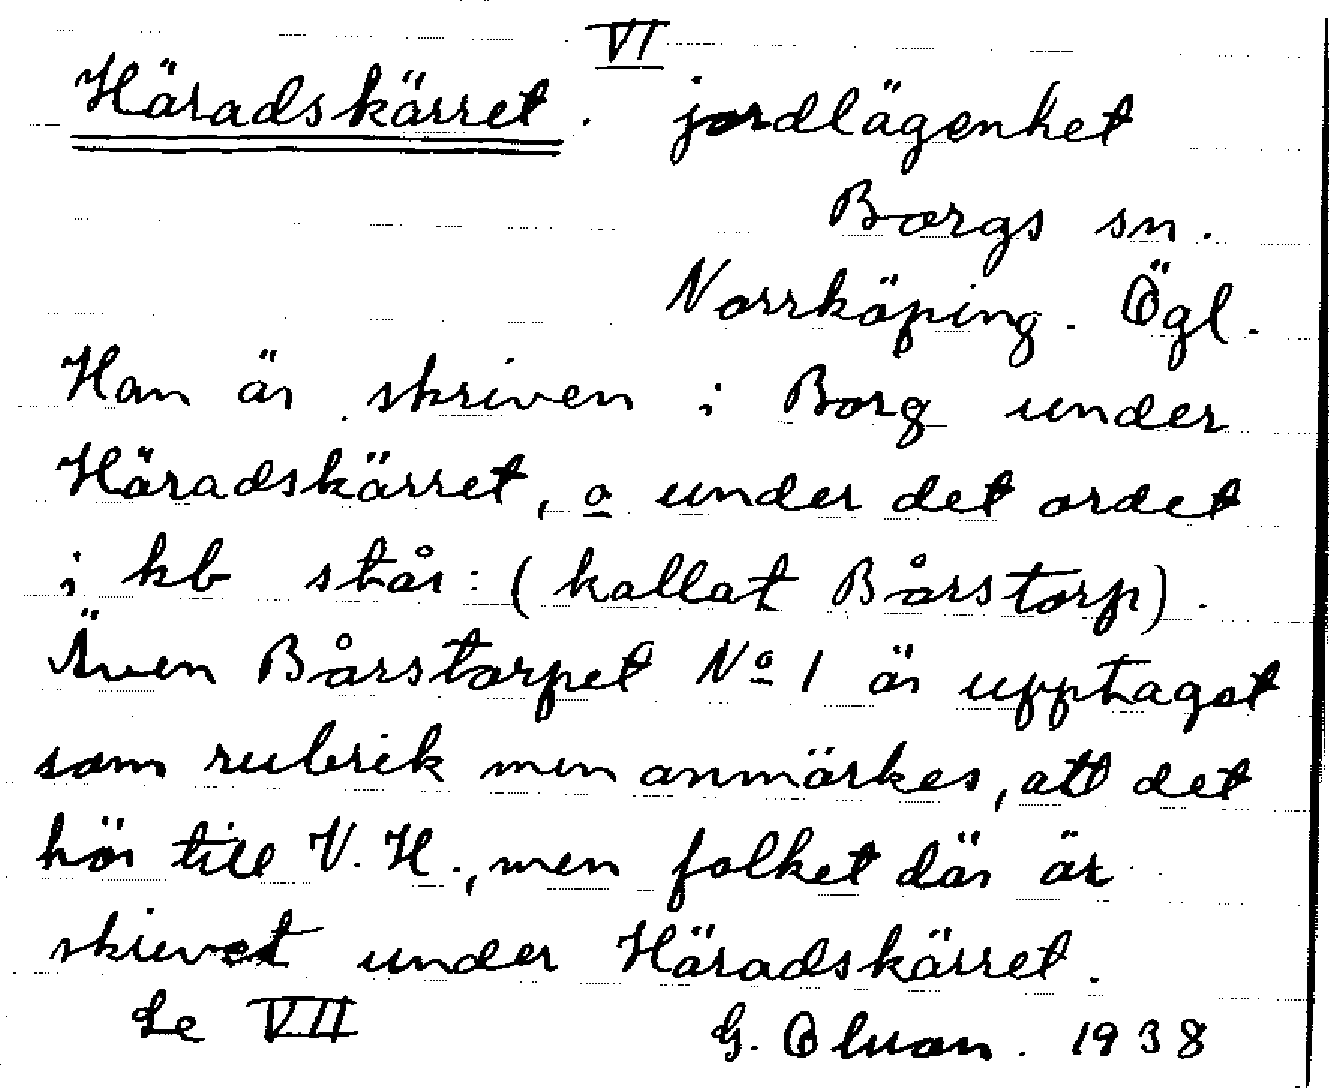 VI
Häradskärret. jordlägenhet
Borgs sn.
Norrköping. Ögl.
Han är skriven i Borg under
Häradskärret, o under det ordet
i kb står: (kallat Bårstorp).
Även Bårstorpet No 1 är upptaget
som rubrik men anmärkes, att det
hör till V. H., men folket där är
skrivet under Häradskärret.
Se VII G. 1938